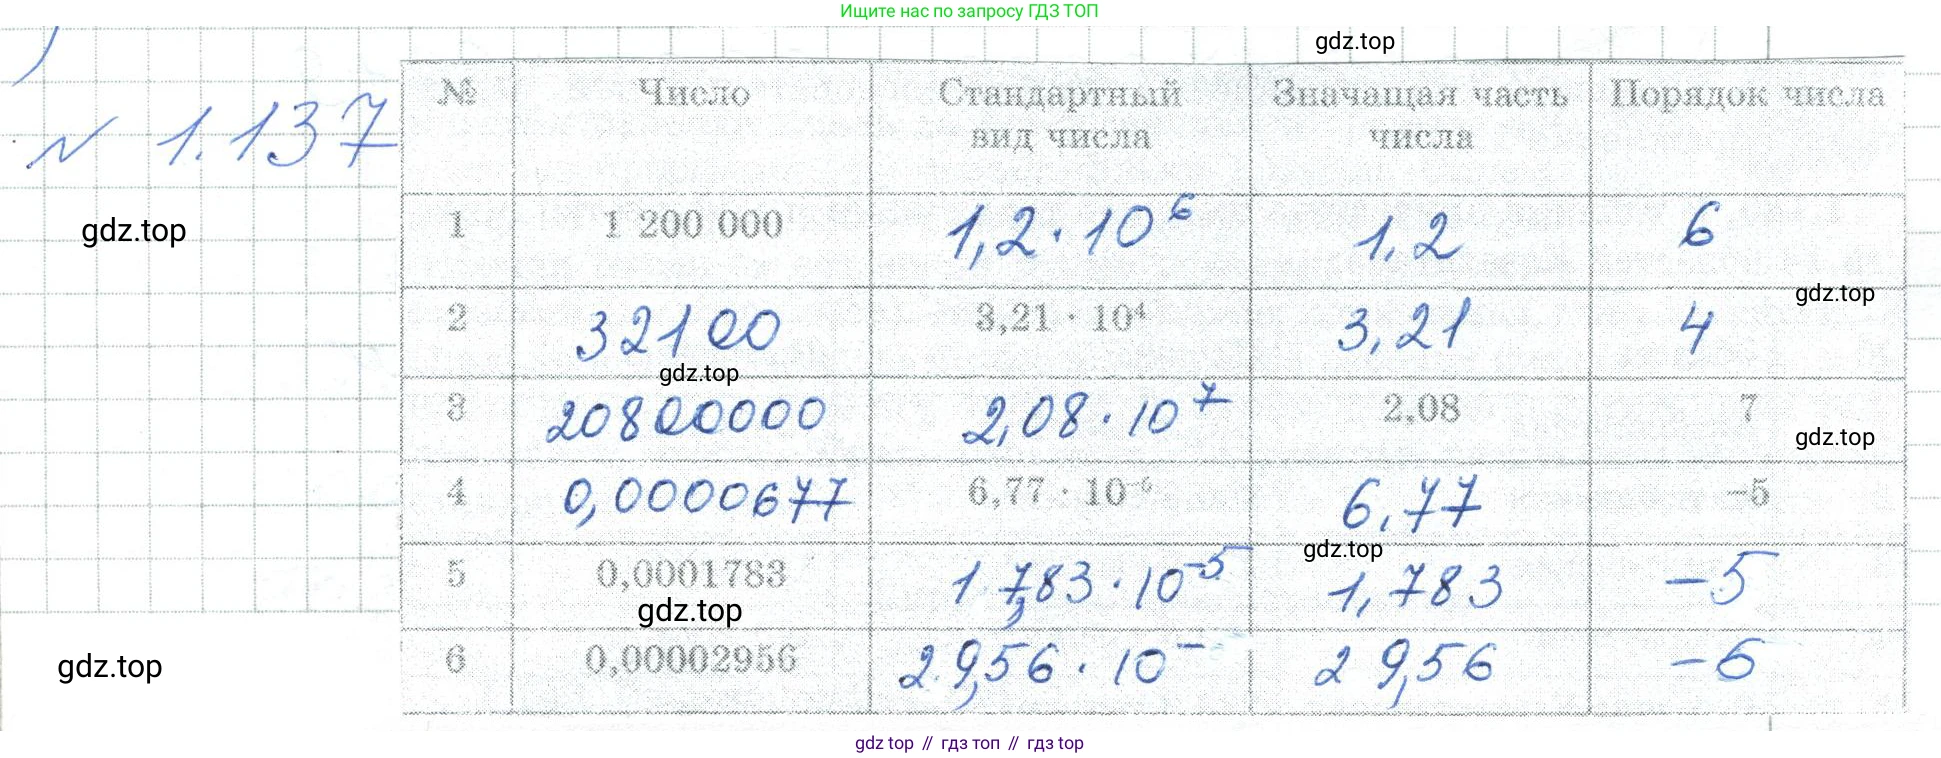 Ищите нас по запросу ГДЗ ТОП
gdz.top
)
N 1.137
№ Число Стандартный вид числа Значащая часть числа Порядок числа
gdz.top
1 1 200 000 1,2 · 10⁶ 1,2 6
gdz.top
2 32100 3,21 · 10⁴ 3,21 4
gdz.top
3 20800000 2,08 · 10⁷ 2,08 7
gdz.top
4 0,0000677 6,77 · 10⁻⁵ 6,77 -5
gdz.top
5 0,0001783 1 7,83 · 10⁻⁵ 1,783 -5
gdz.top
6 0,00002956 2 9,56 · 10⁻ 2 9,56 -6
gdz.top
gdz top // гдз топ // гдз top